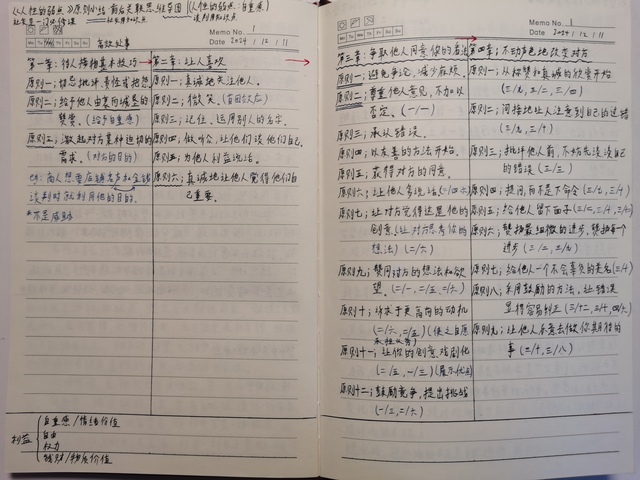 《人性的弱点》原则小结 前后关联思维导图 (人性的弱点:自重感)
社交是一门必修课
Memo No. 1
Mo Tu We Th Fr Sa Su
Date 2024 / 12 / 11
第一章:待人接物基本技巧
原则一:切忌批评、责怪或抱怨
原则二:给予他人由衷的诚恳的
赞赏。(给予自重感)
原则三:激起对方某种迫切的
需求。(对方的目的)
例:商人想要店铺名声和金钱
谈判时就利用他的目的。
第二章:让人喜欢
原则一:真诚地关注他人。
原则二:微笑。
原则三:记住、运用别人的名字。
原则四:做听众,让他们谈他们自己。
原则五:为他人利益说法
原则六:真诚地让他人觉得他们自
己重要。
利益
自重感/情绪价值
自由
权力
钱财/物质价值
Memo No. 1
Mo Tu We Th Fr Sa Su
Date 2024 / 12 / 11
第三章:争取他人同意你的看法
原则一:避免争论,减少麻烦
原则二:尊重他人意见,不加以
否定。(一/一)
原则三:承认错误。
原则四:以友善的方法开始。
原则五:获得对方的同意。
原则六:让他人多说话
原则七:让对方觉得这是他的
创意(让对方思考你的
想法)(二/六)
原则九:赞同对方的想法和欲
望。(二/一、二/五、二/六)
原则十:诉求于更高尚的动机
(二/六、二/五)
原则十一:让你的创意戏剧化
(二/五、一/三)
原则十二:鼓励竞争,提出挑战
(一/三、二/六)
第四章:不动声色地改变对方
原则一:从称赞和真诚的欣赏开始
原则二:间接地让人注意到自己的过错
原则三:批评他人前,不妨先谈谈自己
的错误(三/三)
原则四:提问,而不是下命令
原则五:给他人留下面子
原则六:赞扬最细微的进步,赞扬每个
进步
原则七:给他人一个不会辜负的美名
原则八:采用鼓励的方法,让错误
显得容易纠正
原则九:让他人乐意去做你期待的
事